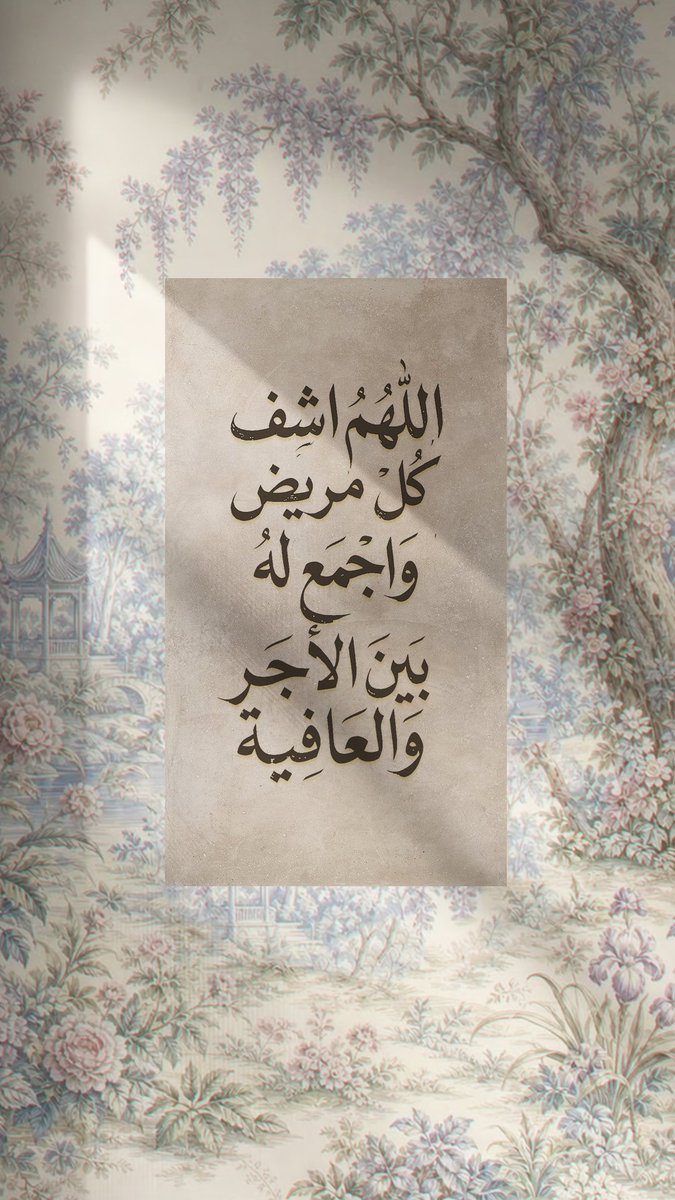 اللهُمُ اشِف
كُلْ مريض
وَاجْمَع لهُ
بَينَ الأجَر
وَالعَافِية